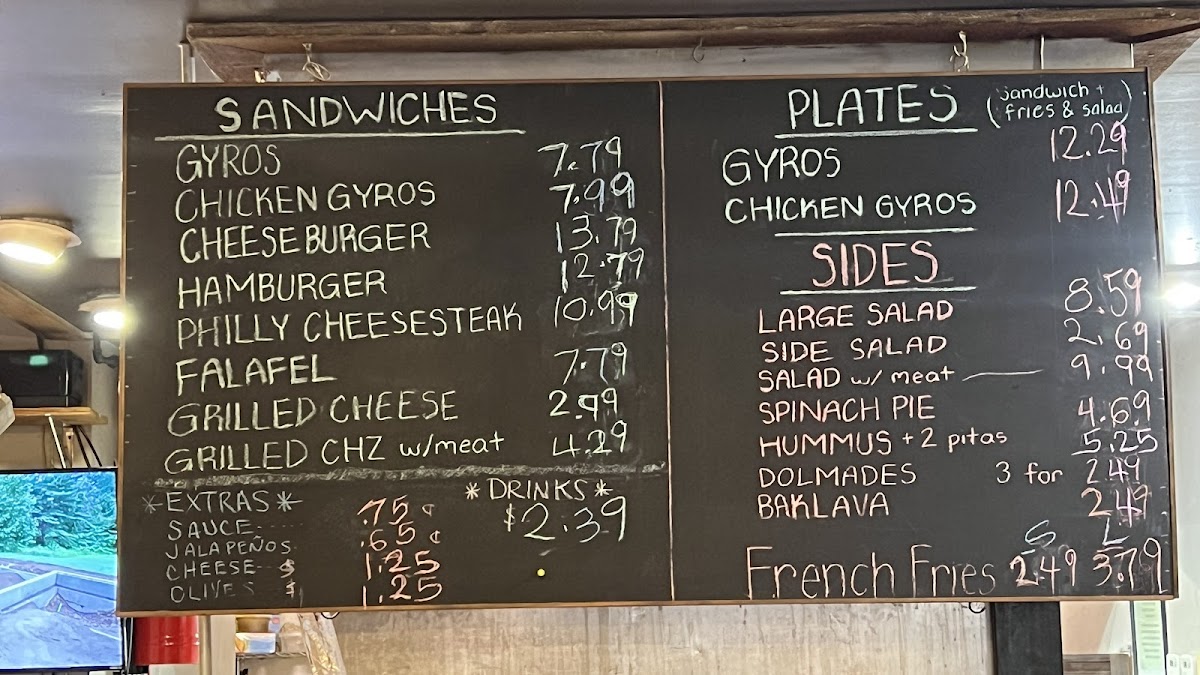 SANDWICHES
GYROS 7.79
CHICKEN GYROS 7.99
CHEESEBURGER 13.79
HAMBURGER 12.79
PHILLY CHEESESTEAK 10.99
FALAFEL 7.79
GRILLED CHEESE 2.99
GRILLED CHZ w/meat 4.29
*EXTRAS*
SAUCE .75 ¢
JALAPEÑOS .65 ¢
CHEESE $ 1.25
OLIVES $ 1.25
*DRINKS*
$2.39
PLATES (Sandwich + fries & salad)
GYROS 12.29
CHICKEN GYROS 12.49
SIDES
LARGE SALAD 8.59
SIDE SALAD 2.69
SALAD w/ meat 9.99
SPINACH PIE 4.69
HUMMUS + 2 pitas 5.25
DOLMADES 3 for 2.49
BAKLAVA 2.49
S L
French Fries 2.49 3.79